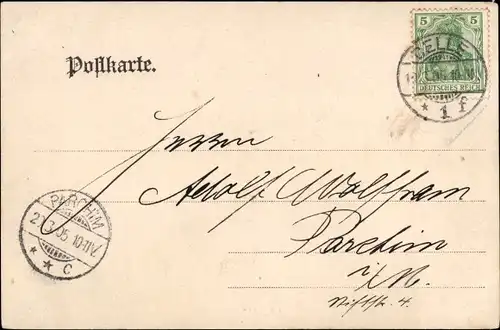 5 5
DEUTSCHES REICH
CELLE
* 1 f
Postkarte.
Herrn
Adolf Wolfram
Parchim
i/M.
PARCHIM
21 3 05 10-11V.
* * c